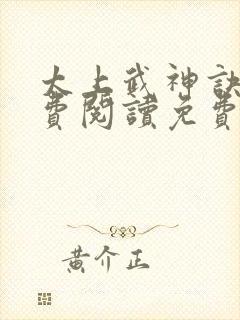 太上武神訣
費閱讀免費
黃介正